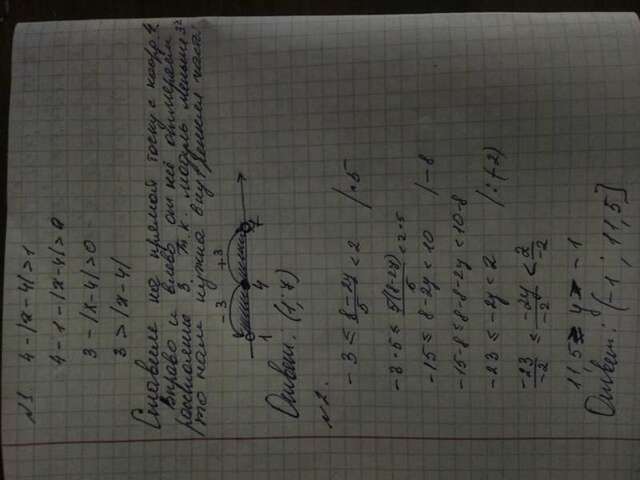 №1 4 - |x-4| > 1
4 - 1 - |x-4| > 0
3 - |x-4| > 0
3 > |x-4|
Ставим на прямой точку с коорд. 4.
Вправо и влево от неё отмеряем
расстояние 3. Т.к. модуль меньше 3
то нам нужна внутренняя часть.
-3 +3
1 4 7
Ответ: (1; 7)
№2.
-3 ≤ (8-2y)/5 < 2 /·5
-3·5 ≤ 5(8-2y)/5 < 2·5
-15 ≤ 8-2y < 10 /-8
-15-8 ≤ 8-8-2y < 10-8
-23 ≤ -2y < 2 /:(-2)
-23/-2 ≤ -2y/-2 < 2/-2
11,5 ≥ y > -1
Ответ: (-1 ; 11,5]